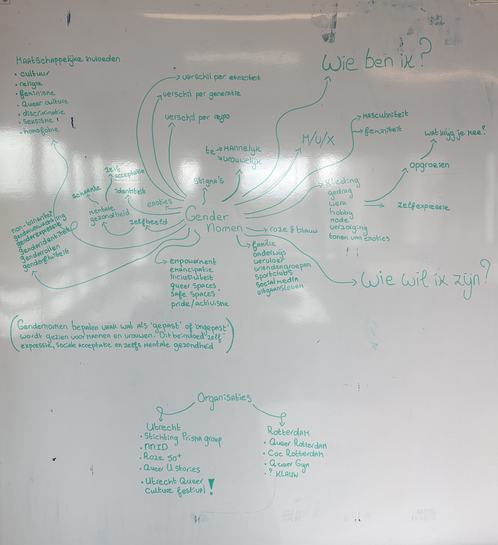 Maatschappelijke invloeden
• cultuur
• religie
• feminisme
• Queer culture
• discriminatie
• sexisme !
• homofobie
verschil per etniciteit
verschil per generatie
verschil per regio
Wie ben ik?
te → mannelijk
→ vrouwelijk
M/U/X
masculiniteit
feminiteit
wat krijg je mee?
opgroeien
zelfexpressie
zelf
acceptatie
schaamte
identiteit
mentale
gezondheid
emoties
zelfbeeld
stigma's
Gender
Normen
kleding
gedrag
werk
hobby
mode
verzorging
tonen van emoties
roze & blauw
non-binariteit
genderexpressie
genderidentiteit
genderrollen
genderfluïditeit
familie
onderwijs
werkvloer
vriendengroepen
sportclubs
social media
uitgaansleven
empowerment
emancipatie
inclusiviteit
queer spaces
safe spaces
pride/activisme
Wie wil ik zijn?
(Gendernormen bepalen vaak wat als 'gepast' of 'ongepast'
wordt gezien voor mannen en vrouwen. Dit beïnvloed zelf-
expressie, sociale acceptatie en zelfs mentale gezondheid)
Organisaties
Utrecht
• Stichting Prisma group
• NNID
• Roze 50+
• Queer U stories
• Utrecht Queer
Culture festival !
Rotterdam
• Queer Rotterdam
• Coc Rotterdam
• Queer Gym
• ? KLAUW